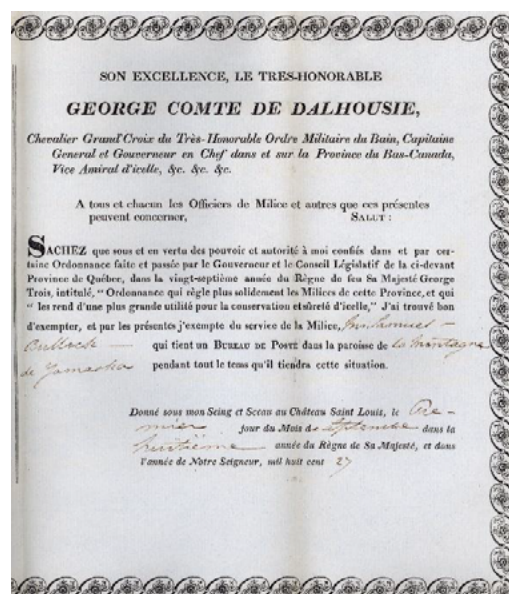 SON EXCELLENCE, LE TRES-HONORABLE
GEORGE COMTE DE DALHOUSIE,
Chevalier Grand'Croix du Très-Honorable Ordre Militaire du Bain, Capitaine
General et Gouverneur en Chef dans et sur la Province du Bas-Canada,
Vice Amiral d'icelle, &c. &c. &c.
A tous et chacun les Officiers de Milice et autres que ces présentes
peuvent concerner, SALUT :
SACHEZ que sous et en vertu des pouvoir et autorité à moi confiés dans et par cer-
taine Ordonnance faite et passée par le Gouverneur et le Conseil Législatif de la ci-devant
Province de Québec, dans la vingt-septième année du Règne de feu Sa Majesté George
Trois, intitulé, “ Ordonnance qui règle plus solidement les Milices de cette Province, et qui
“ les rend d'une plus grande utilité pour la conservation et sûreté d'icelle,” J'ai trouvé bon
d'exempter, et par les présentes j'exempte du service de la Milice, Samuel
Bullock qui tient un BUREAU DE POSTE dans la paroisse de la montagne
de Yamaska pendant tout le tems qu'il tiendra cette situation.
Donné sous mon Seing et Sceau au Château Saint Louis, le Pre-
mier jour du Mois de Septembre dans la
huitième année du Règne de Sa Majesté, et dans
l'année de Notre Seigneur, mil huit cent 27